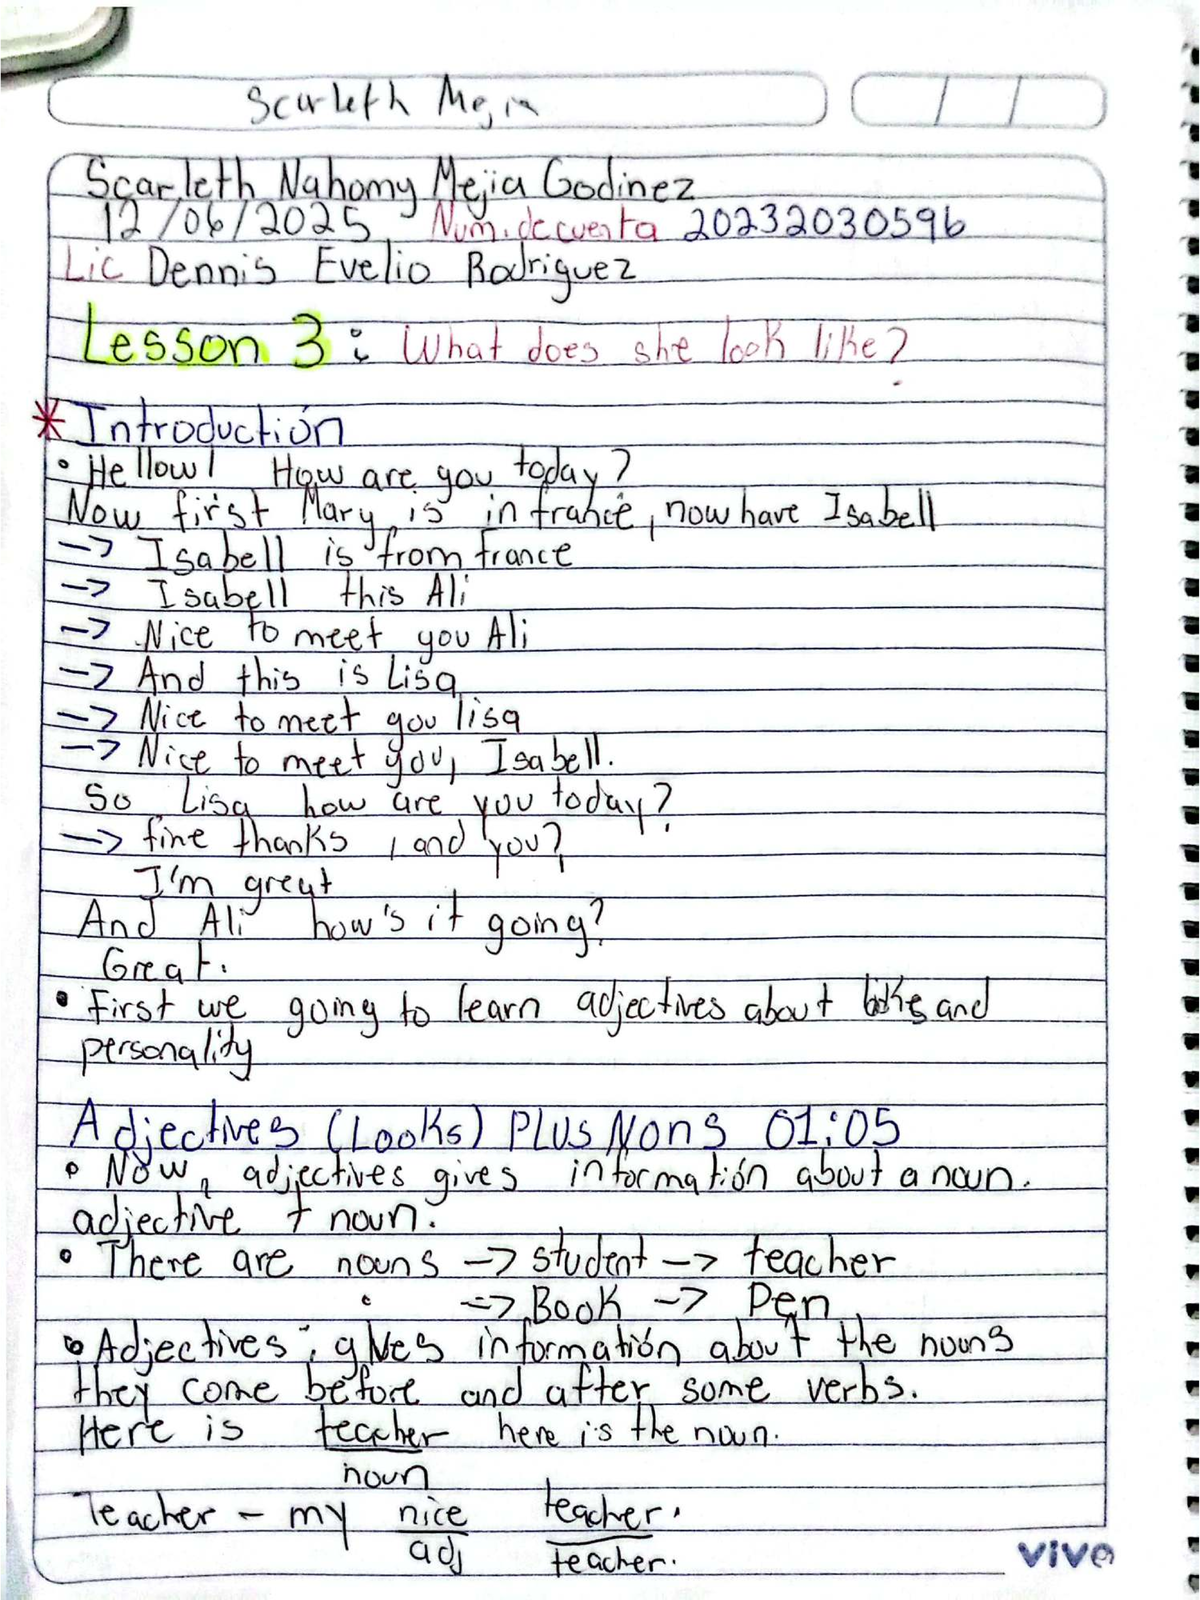 Scarleth Mejia
Scarleth Nahomy Mejia Godinez
12/06/2025 Num.de cuenta 20232030596
Lic Dennis Evelio Rodriguez
Lesson 3: What does she look like?
* Introductión
• Hellow! How are you today?
Now first Mary is in france, now have Isabell
-> Isabell is from france
-> Isabell this Ali
-> Nice to meet you Ali
-> And this is Lisa
-> Nice to meet you lisa
-> Nice to meet you, Isabell.
So Lisa how are you today?
-> fine thanks, and you?
I'm great
And Ali how's it going?
Great.
• First we going to learn adjectives about and
personality
Adjectives (Looks) PLUS Nons 01:05
• Now, adjectives gives informatión about a noun.
adjective + noun.
• There are nouns -> student -> teacher
-> Book -> Pen
• Adjectives: gives informatión about the nouns
they come before and after some verbs.
Here is teacher here is the noun.
noun
Teacher - my nice teacher.
adj teacher.
vivo